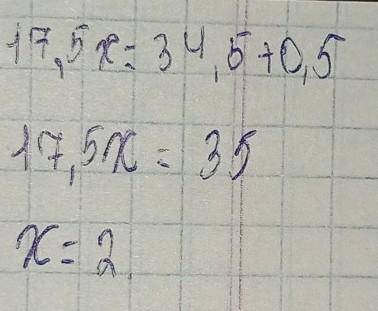 17,5x=34,5+0,5
17,5x=35
x=2